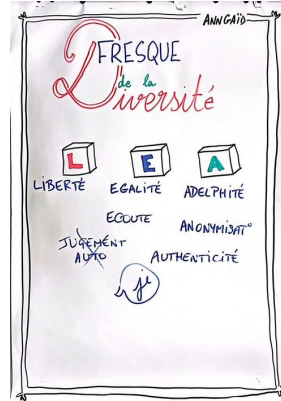 ANNGAÏD
FRESQUE
de la
Diversité
L E A
LIBERTÉ EGALITÉ ADELPHITÉ
ECOUTE
ANONYMISAT°
JUGEMENT
AUTO
AUTHENTICITÉ
"je"